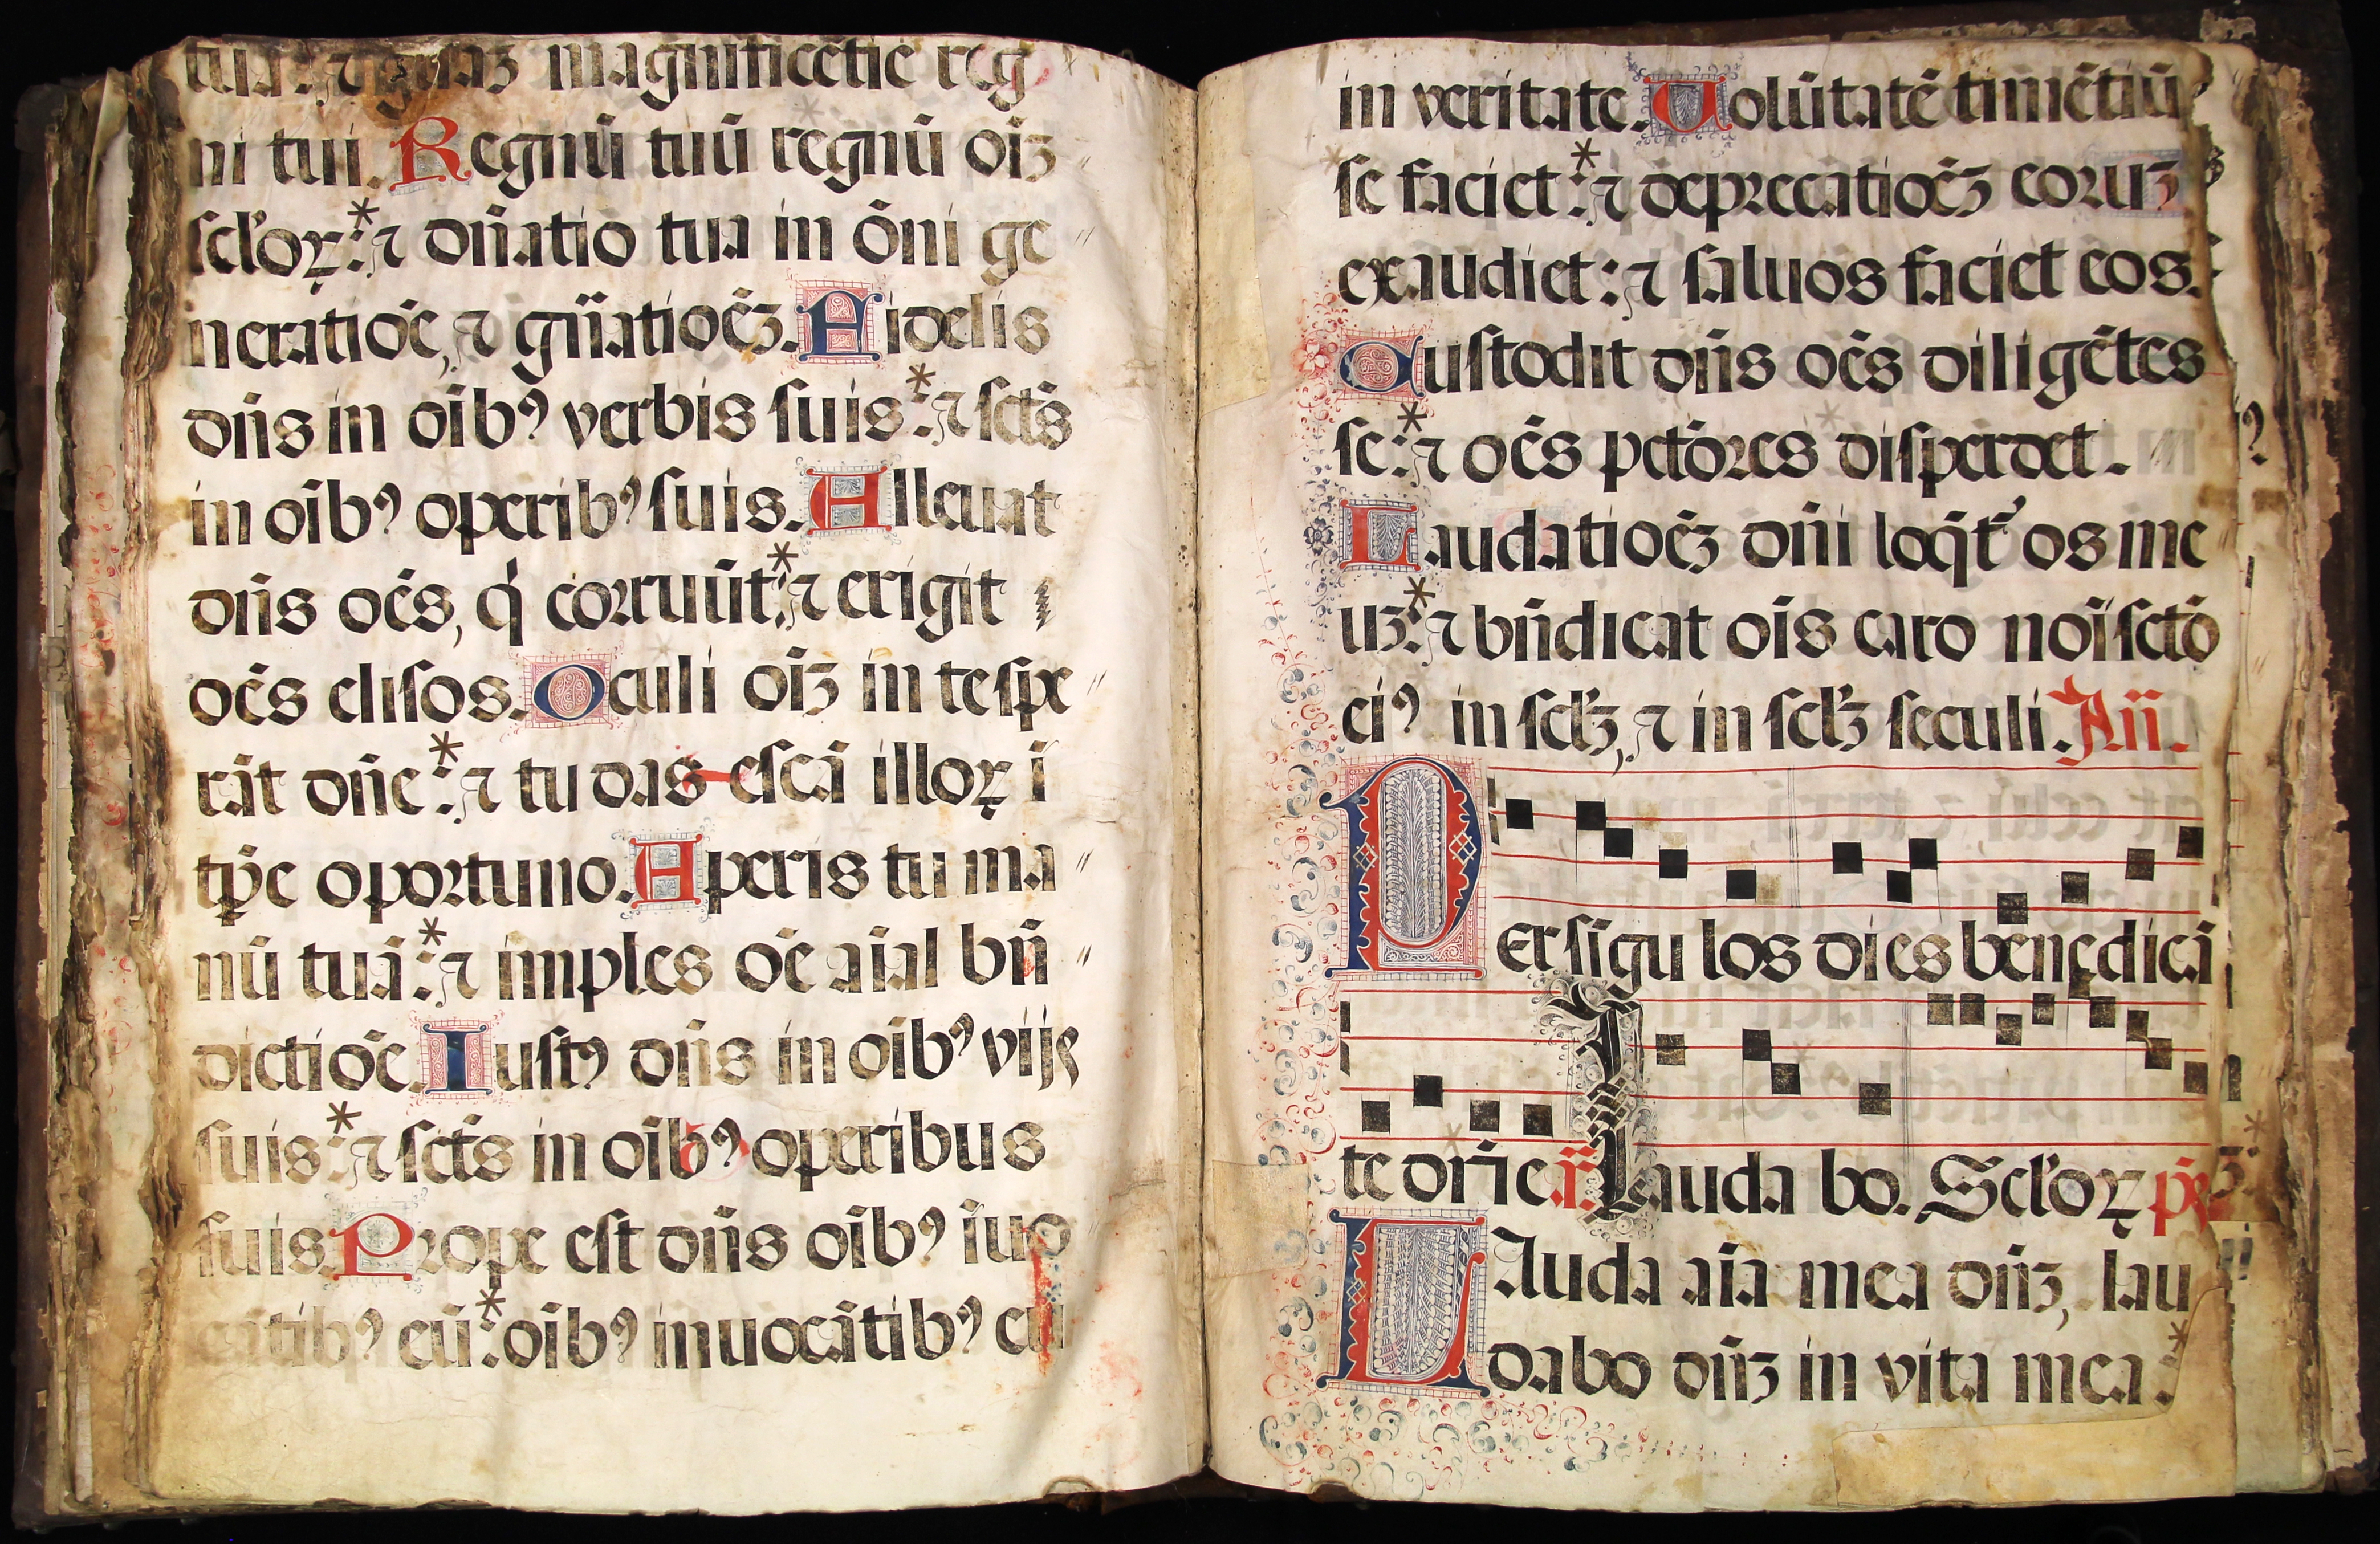 tuā: ⁊ gl̄iaꝫ magnificētie reg
ni tui. Regnū tuū regnū oīꝫ
scl'oꝝ*: ⁊ dn̄atio tua in ōni ge
neratiōe, ⁊ gn̄atioēꝫ. Fidelis
dn̄s in oībꝰ verbis suis*: ⁊ sct̄s
in oībꝰ operibꝰ suis. Alleuat
dn̄s oēs, q̇ corruūt*: ⁊ erigit
oēs elisos. Oculi oīꝫ in te spe
rāt dn̄e*: ⁊ tu das escā illoꝝ ī
tp̄e oportuno. Aperis tu ma
nū tuā*: ⁊ imples oē aīal bn̄
dictiōe. Iustꝰ dn̄s in oībꝰ vijs
suis*: ⁊ sct̄s in oībꝰ operibus
suis. Prope est dn̄s oībꝰ īuo
cātibꝰ eū*: oībꝰ inuocātibꝰ eū
in veritate. Uolūtatē timētiū
se faciet*: ⁊ deprecatioēꝫ eoruꝫ
exaudiet: ⁊ saluos faciet eos.
Custodit dn̄s oēs diligētes
se*: ⁊ oēs pctōres disperdet.
Laudatioēꝫ dn̄i loq̄t' os me
uꝫ*: ⁊ bn̄dicat oīs caro noī sctō
eiꝰ in scl̄ꝫ, ⁊ in scl̄ꝫ seculi. An̄.
Per sīgu los dies benedicā
te dn̄e r̄. Lauda bo. Scl'oꝝ p̄s
LAuda aīa mea dn̄ꝫ, lau
dabo dn̄ꝫ in vita mea*: